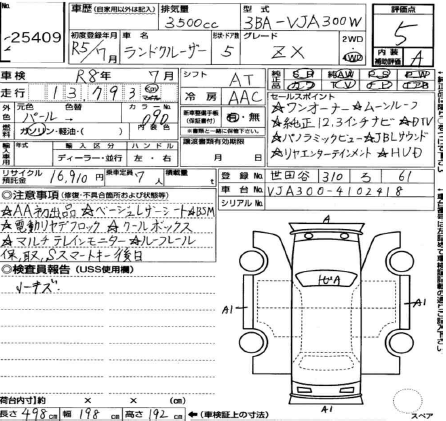 25409
車歴 (自家用以外は記入) 排気量 3500cc 型式 3BA-VJA300W
初度登録年月 R5/7月 車名 ランドクルーザー 形状・ドア数 5 グレード ZX 2WD・4WD
評価点 5
内装補助評価 A
車検 R8年7月 シフト AT
走行 13,793 km
冷房 AAC
外色 元色 パール→ 色替 カラーNo. 090
燃料 ガソリン・軽油・( ) 内装色
新車整備手帳(保証書付) 有・無
輸入車用 年式 輸入区分 ディーラー・並行 ハンドル 左・右
譲渡書類有効期限 月 日
セールスポイント
☆ワンオーナー ☆ムーンルーフ
☆純正12.3インチナビ ☆DTV
☆パノラミックビュー ☆JBLサウンド
☆リヤエンターテインメント ☆HUD
リサイクル預託金 16,910円 乗車定員 7人 積載量 t
登録No. 世田谷 310 ろ 61
車台No. VJA300-4102418
シリアルNo.
◎注意事項 (修復・不具合箇所および状態等)
☆AA初出品 ☆ベージュレザーシート ☆BSM
☆電動リヤデフロック ☆クールボックス
☆マルチテレインモニター ☆ルーフレール
保、取、Sスマートキー後日
◎検査員報告 (USS使用欄)
A
ビA
A1
A1
A1
荷台内寸 約 × × (cm)
長さ 498cm 幅 198cm 高さ 192cm ←(車検証上の寸法)
スペア